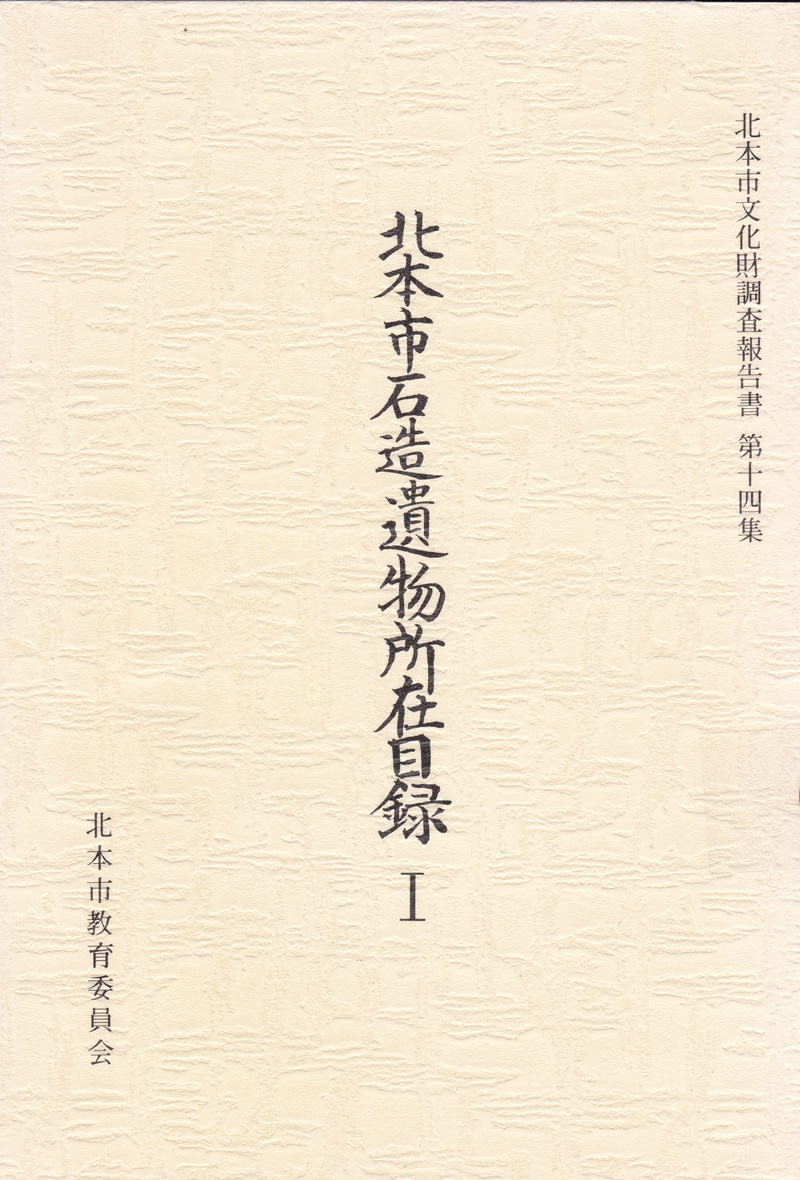 北本市文化財調査報告書 第十四集
北本市石造遺物所在目録 I
北本市教育委員会